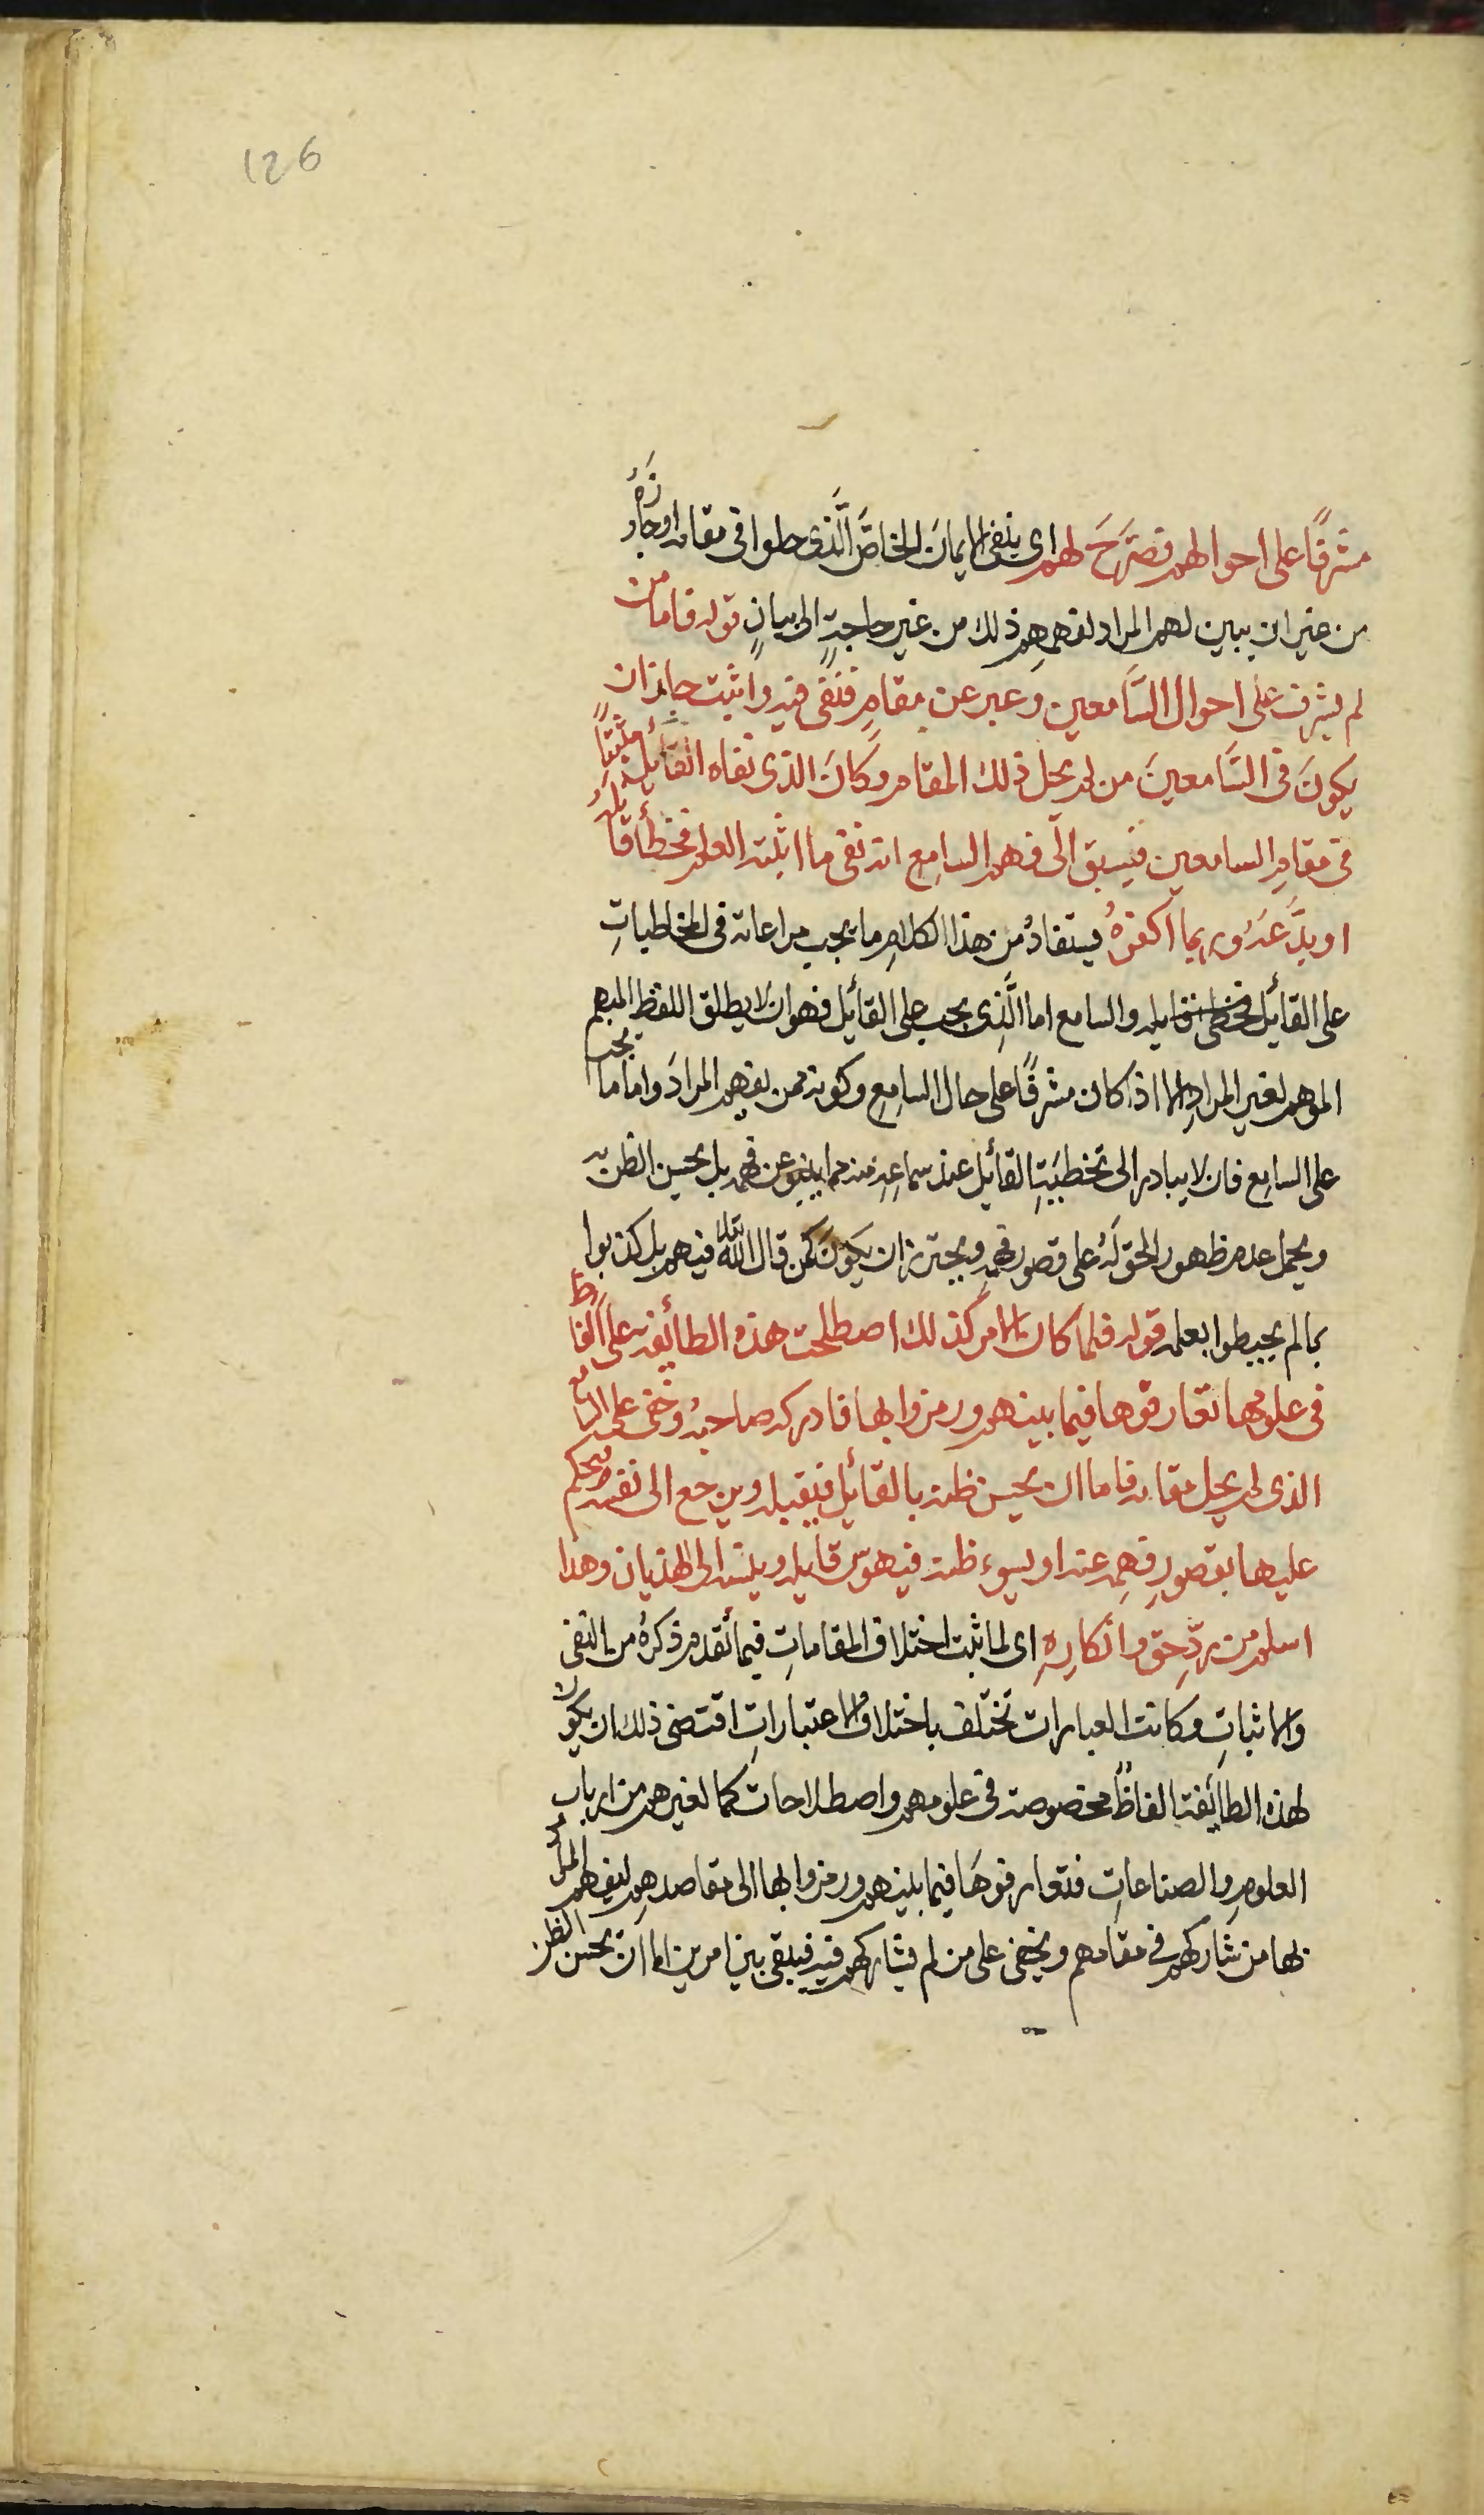 126
مشرفًا على احوالهم فصَرَّحَ لهم اى ينفى الايمانَ الخاصَّ الَّذى حلوا فى مقامه او جاوزَهُ
من غير ان يبين لهم المراد لفهمهِم ذلك من غير حاجةٍ الى بيانٍ قوله فاما من
لم يشرف على احوال السَّامعين وعبر عن مقامٍ فنَفَى فيه واثبت جايز ان
يكونَ فى السَّامعينَ من لم يحل ذلك المقام وكَانَ الذى نفاه القائل مثبتًا
فى مقامِ السامعين فيسبق الى فهم السامع انه نفى ما اثبته العلم فخطأ قايلهُ
او بدَّعَهُ وربما اكفرهُ يستفادُ من هذا الكلامِ ما يجب مراعاته فى المخاطباتِ
على القائل فخطى قايله والسامع اما الَّذى يجب على القائل فهو ان لا يطلق اللفظ المبهم
الموهم لغير المرادِ الا اذا كان مشرفًا على حال السامِعِ وكونه ممن يفهم المرادَ واما ما يجب
على السامِع فان لا يبادر الى تخطيَةِ القائِل عند سماعِهِ منه مما ينبو عن فهمه بل يحسن الظن به
ويحمل عدم ظهور الحق لَهُ على قصور فهمِهِ ويحترز ان يكونَ كمن قال الله تعالى فيهم بل كذبوا
بما لم يحيطوا بعلمه قوله فلما كان الامر كذلك اصطلحت هذه الطائفة على الفاظٍ
فى علومها تعارفوها فيما بينهم ورمزوا بها فادركه صاحبهُ وخفى على السامع
الذى لم يحل مقامه فاما ان يحسن ظنه بالقائل فيقبله ويرجع الى نفسه فيحكم
عليها بقصورِ فهمِهِ عنه او يسوء ظنه فيهوّس قايله وينسبه الى الهذيان وهذا
اسلم من ردِّ حق وانكارِهِ اى لما ثبت اختلاف المقاماتِ فيما تقدم ذكرهُ من النفى
والاثباتِ وكانت العبارات تختلف باختلاف الاعتباراتِ اقتضى ذلك ان يكون
لهذه الطائفة الفاظًا مخصوصة فى علومهم واصطلاحات كما لغيرهم من ارباب
العلومِ والصناعاتِ فتعارفوهَا فيما بينهم ورمزوا بها الى مقاصدهِم ليفهم المرادُ
بها من شاركهم فى مقامهم ويخفى على من لم يشاركهم فيه فيبقى بين امرين اما ان يحسن الظن